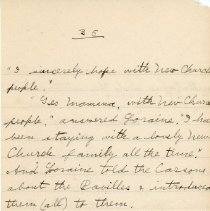 36
"I sincerely hope with New Church
people."
"Yes Mamma, with New Church
people," answered Loraine, "I have
been staying with a lovely New
Church family all the time."
And Loraine told the Carsons
about the Davilles & introduced
them (all) to them.